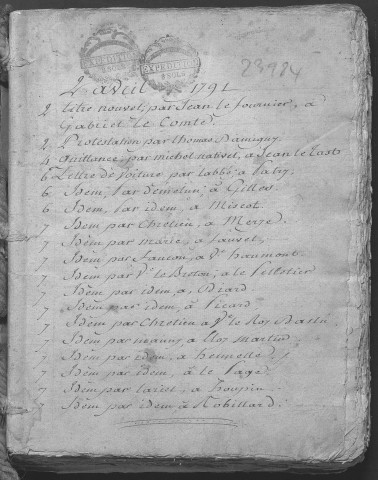 EXPEDITION
2 SOLS
EXPEDITION
2 SOLS
23984
2 avril 1791
2 titre nouvel, par Jean le fournier, a
Gabriel le Comte
2 Protestation par thomas Damigny
4 Quittance, par michel nativel, a Jean le
6 Lettre de Voiture par labbé, a
6 Idem, par a Gilles
6 Idem, par idem, a Miscot
7 Idem par Chretien, a
7 Idem par marie, a fauvel,
7 Idem par faucon, a Ve haumont
7 Idem par Ve le Breton, a le Pelletier
Idem par idem a, Biard
7 Idem par idem, a Picard
7 Idem par Chretien a Ve le Roy
7 Idem par a Clos martin
7 Idem par idem, a
7 Idem par idem, a le Page
7 Idem par a houpin
7 Idem par idem, a Robillard.